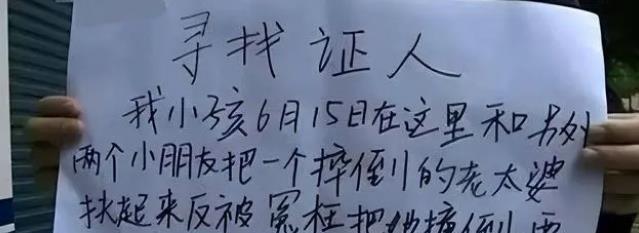 寻找证人
我小孩6月15日在这里和另外
两个小朋友把一个摔倒的老太婆
扶起来反被冤枉把她撞倒要